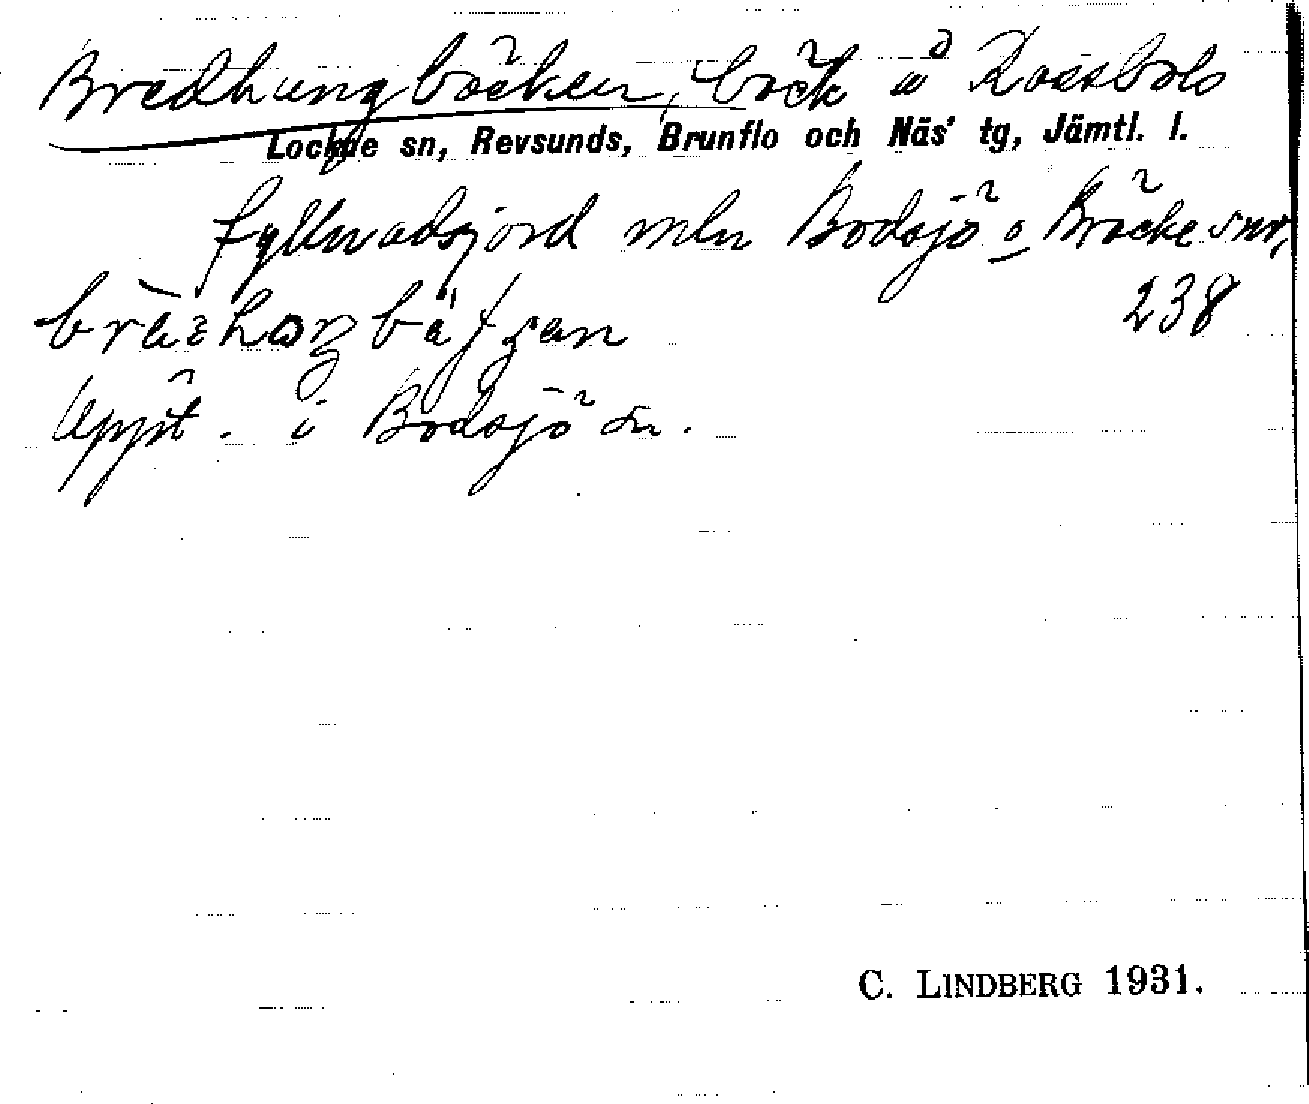 Bredhungbäcken, bäck å Rossbols
Lockne sn, Revsunds, Brunflo och Näs' tg, Jämtl. l.
fyllnadsjord mln Bodsjö o Bräcke snr,
238
Uppt. i Bodsjö sn.
C. LINDBERG 1931.